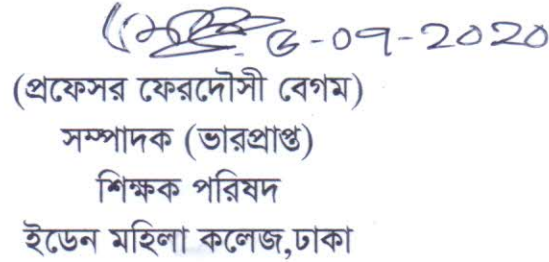 ৬-০৭-২০২০
(প্রফেসর ফেরদৌসী বেগম)
সম্পাদক (ভারপ্রাপ্ত)
শিক্ষক পরিষদ
ইডেন মহিলা কলেজ,ঢাকা